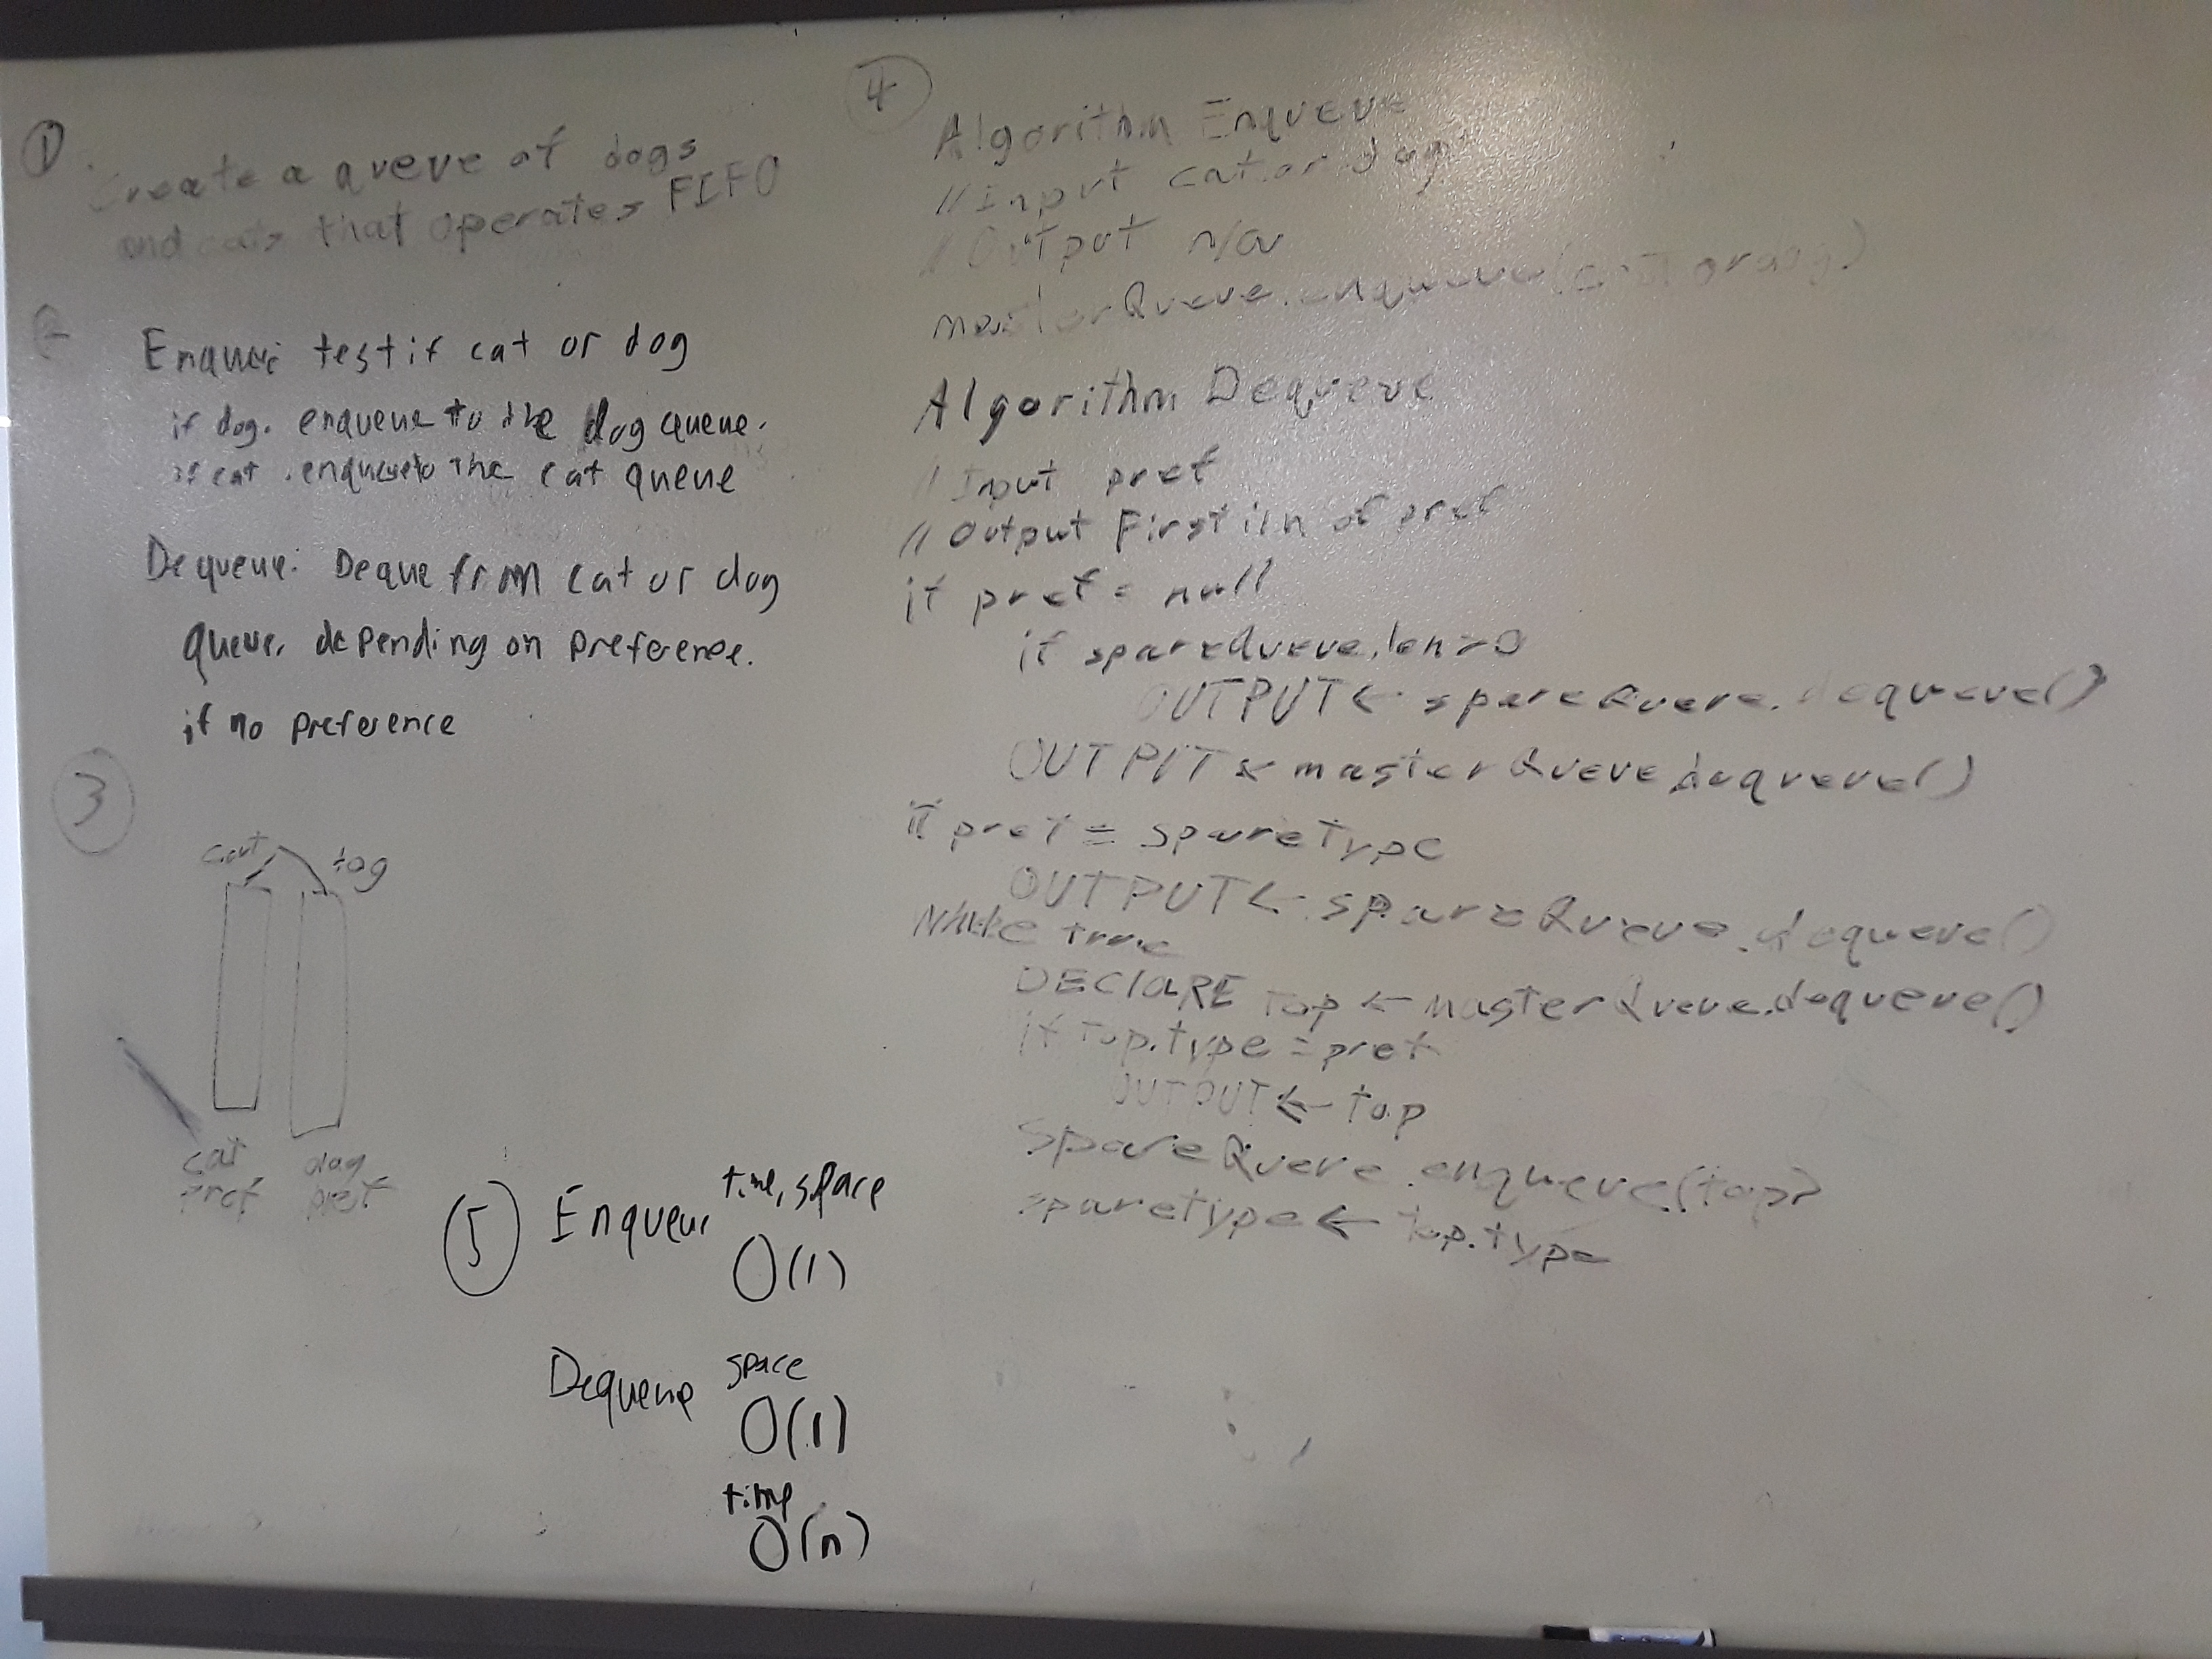 ①
Create a queue of dogs
and cats that operates FIFO
2
Enqueue test if cat or dog
if dog. enqueue to the dog queue.
if cat. enqueue to the cat queue
Dequeue: Deque from cat or dog
queue, depending on preference.
if no preference
③
cat
cat dog
pref pref
④
Algorithm Enqueue
// Input cat or dog
// Output n/a
masterQueue.enqueue(cat or dog)
Algorithm Dequeue
// Input pref
// Output First iin of pref
if pref = null
if spareQueue.len > 0
OUTPUT ← spareQueue.dequeue()
OUTPUT ← masterQueue.dequeue()
if pref = spareType
OUTPUT ← spareQueue.dequeue()
While true
DEClARE top ← masterQueue.dequeue()
if top.type = pref
OUTPUT ← top
SpareQueue.enqueue(top)
sparetype ← top.type
⑤ Enqueue time, space
O(1)
Dequeue space
O(1)
time
O(n)